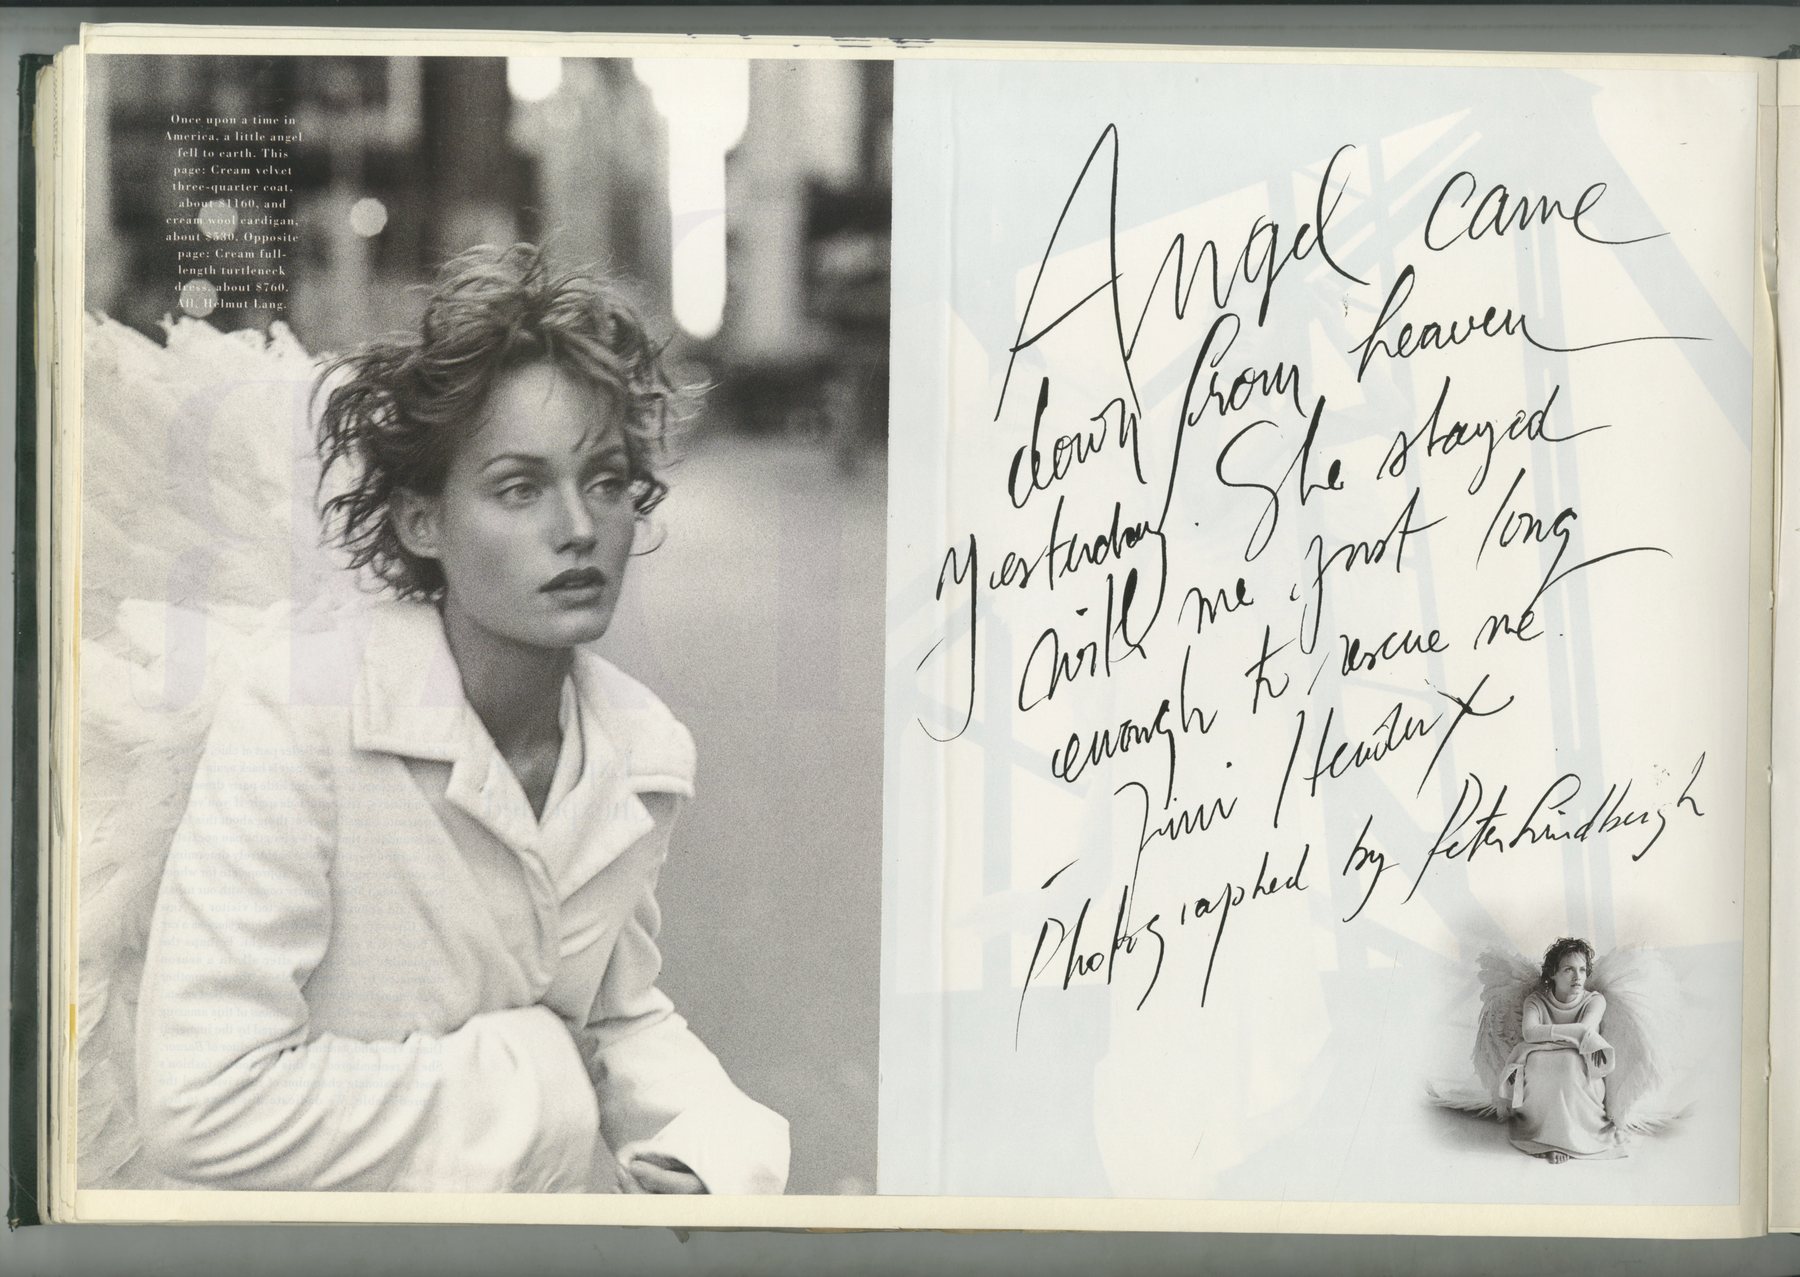 Once upon a time in
America, a little angel
fell to earth. This
page: Cream velvet
three-quarter coat,
about $1160, and
cream wool cardigan,
about $530. Opposite
page: Cream full-
length turtleneck
dress, about $760.
All, Helmut Lang.
Angel came
down from heaven
yesterday. She stayed
with me just long
enough to rescue me.
- Jimi Hendrix
Photographed by Peter Lindbergh